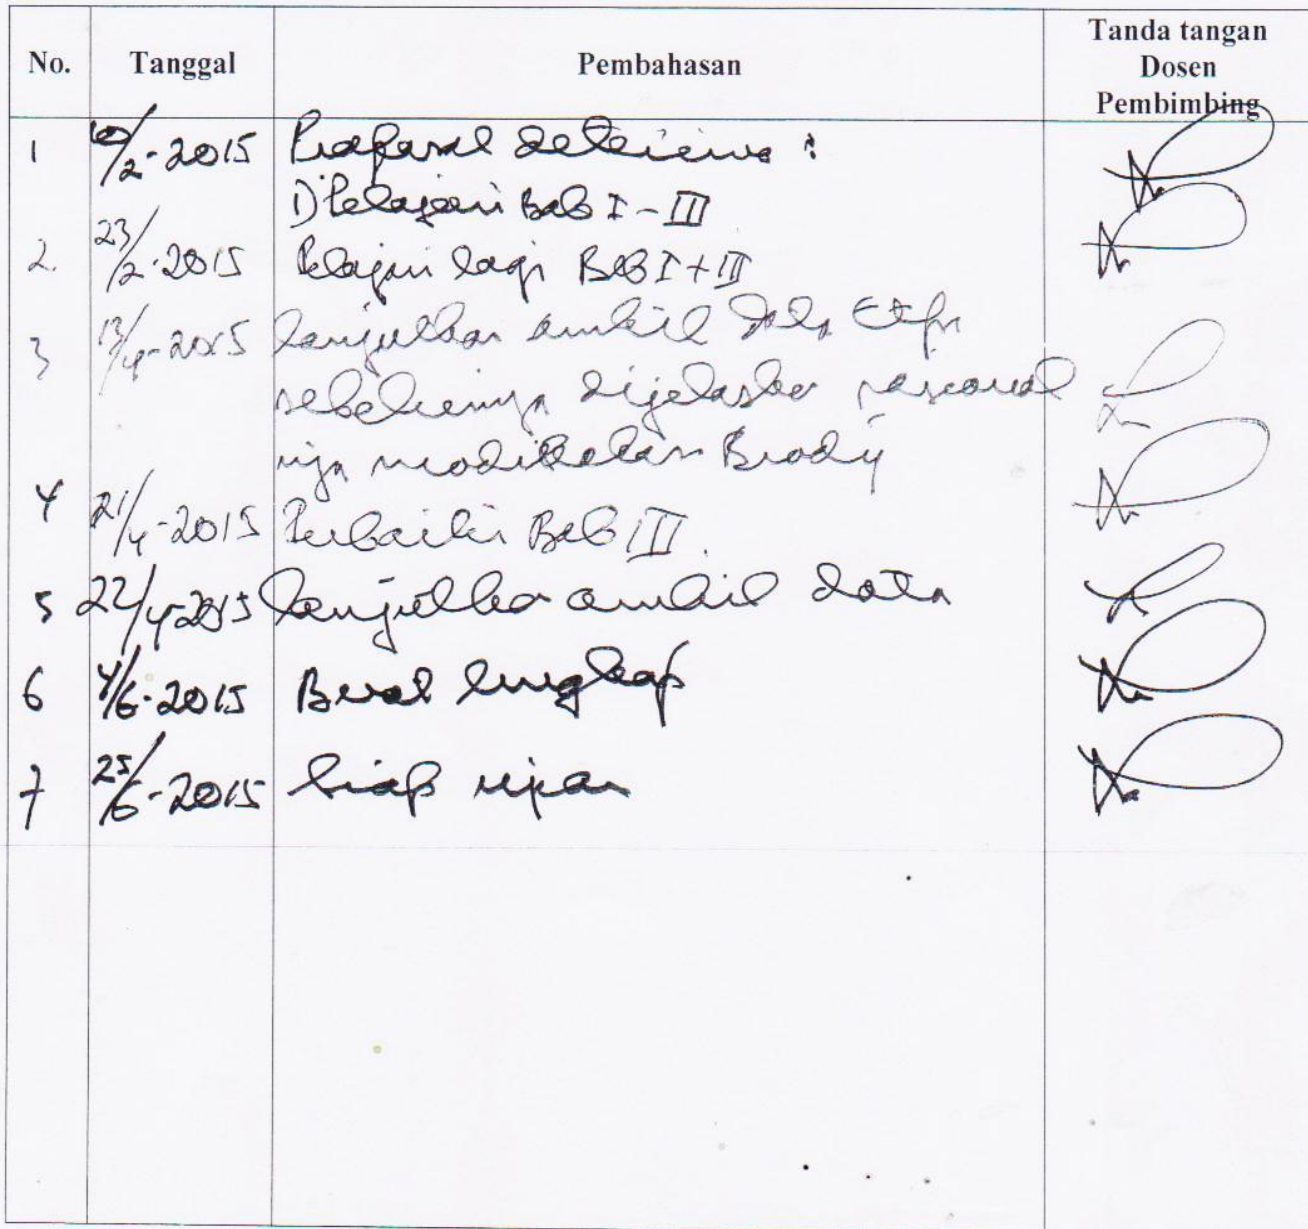 No. Tanggal Pembahasan Tanda tangan
Dosen
Pembimbing
1 10/2-2015 Proposal diterima :
1) Pelajari Bab I - III
2. 23/2-2015 Pelajari lagi Bab I + III
3 13/4-2015 lanjutkan ambil data
sebelumnya dijelaskan rasional
nya Brody
4 21/4-2015 Perbaiki Bab III.
5 22/4-2015 lanjutkan ambil data
6 4/6-2015 lengkap
7 25/6-2015 Siap ujian